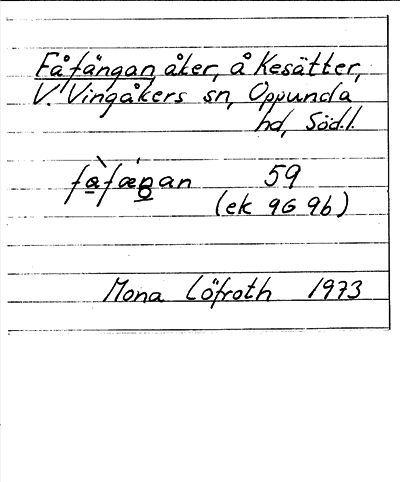 Fåfängan, åker, å Kesätter,
V. Vingåkers sn, Oppunda
hd, Södl.
fàfæ´ŋan 59
(ek 9G 9b)
Mona Löfroth 1973